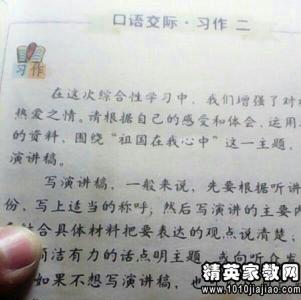 口语交际·习作 二
习作
在这次综合性学习中，我们增强了对祖
热爱之情。请根据自己的感受和体会，运用
的资料，围绕“祖国在我心中”这一主题，
演讲稿。
写演讲稿，一般来说，先要根据听讲
份，写上适当的称呼；然后写演讲的主要内
结合具体材料把要表达的观点说清楚，
简洁有力的话点明主题，或向听众发
如果不想写演讲稿，也
精英家教网
www.1010jiajiao.com